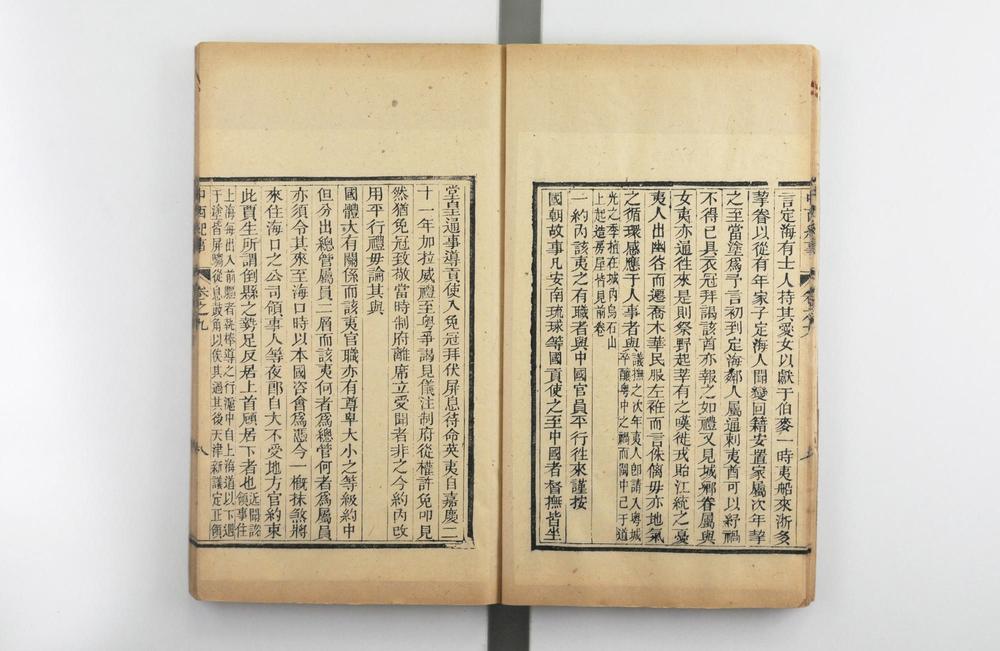 言定海有士人持其愛女以獻于伯麥一時夷船來浙多
挈眷以從有年家子定海人聞變回籍安置家屬次年挈
之至當塗爲予言初到定海鄰人屬通刺夷酋可以紓禍
不得已具衣冠拜謁該酋亦報之如禮又見城鄉眷屬與
女夷亦通往來是則祭野起莘有之嘆徙戎貽江統之憂
夷人出幽谷而遷喬木華民服左袵而言侏𠌯毋亦地氣
之循環感應于人事者與議撫之次年夷人卽請入粵城
卒釀粵中之禍而閩中己于道
光之季植在城內烏石山
上起造房屋情見前卷
一約內該夷之有職者與中國官員平行往來謹按
國朝故事凡安南琉球等國貢使之至中國者督撫皆坐
中西紀事
卷之九
八
堂皇通事導貢使入免冠拜伏屏息待命英夷自嘉慶二
十一年加拉威禮至粵爭謁見儀注制府從權許免叩見
然猶免冠致敬當時制府離席立受聞者非之今約內改
用平行禮毋論其與
國體大有關係而該夷官職亦有尊卑大小之等級約中
但分出總管屬員二層而該夷何者爲總管何者爲屬員
亦須令其來至海口時以本國咨會爲憑今一概抹煞將
來住海口之公司領事人等夜郎自大不受地方官約束
此賈生所謂倒縣之勢足反居上首顧居下者也近聞該
領事住
上海每出入前驅者執棒導之行滬中自上海道以下遇
于塗皆屏騶從息鼓角以俟其過其後天津新議定正領
中西紀事
卷之九
八